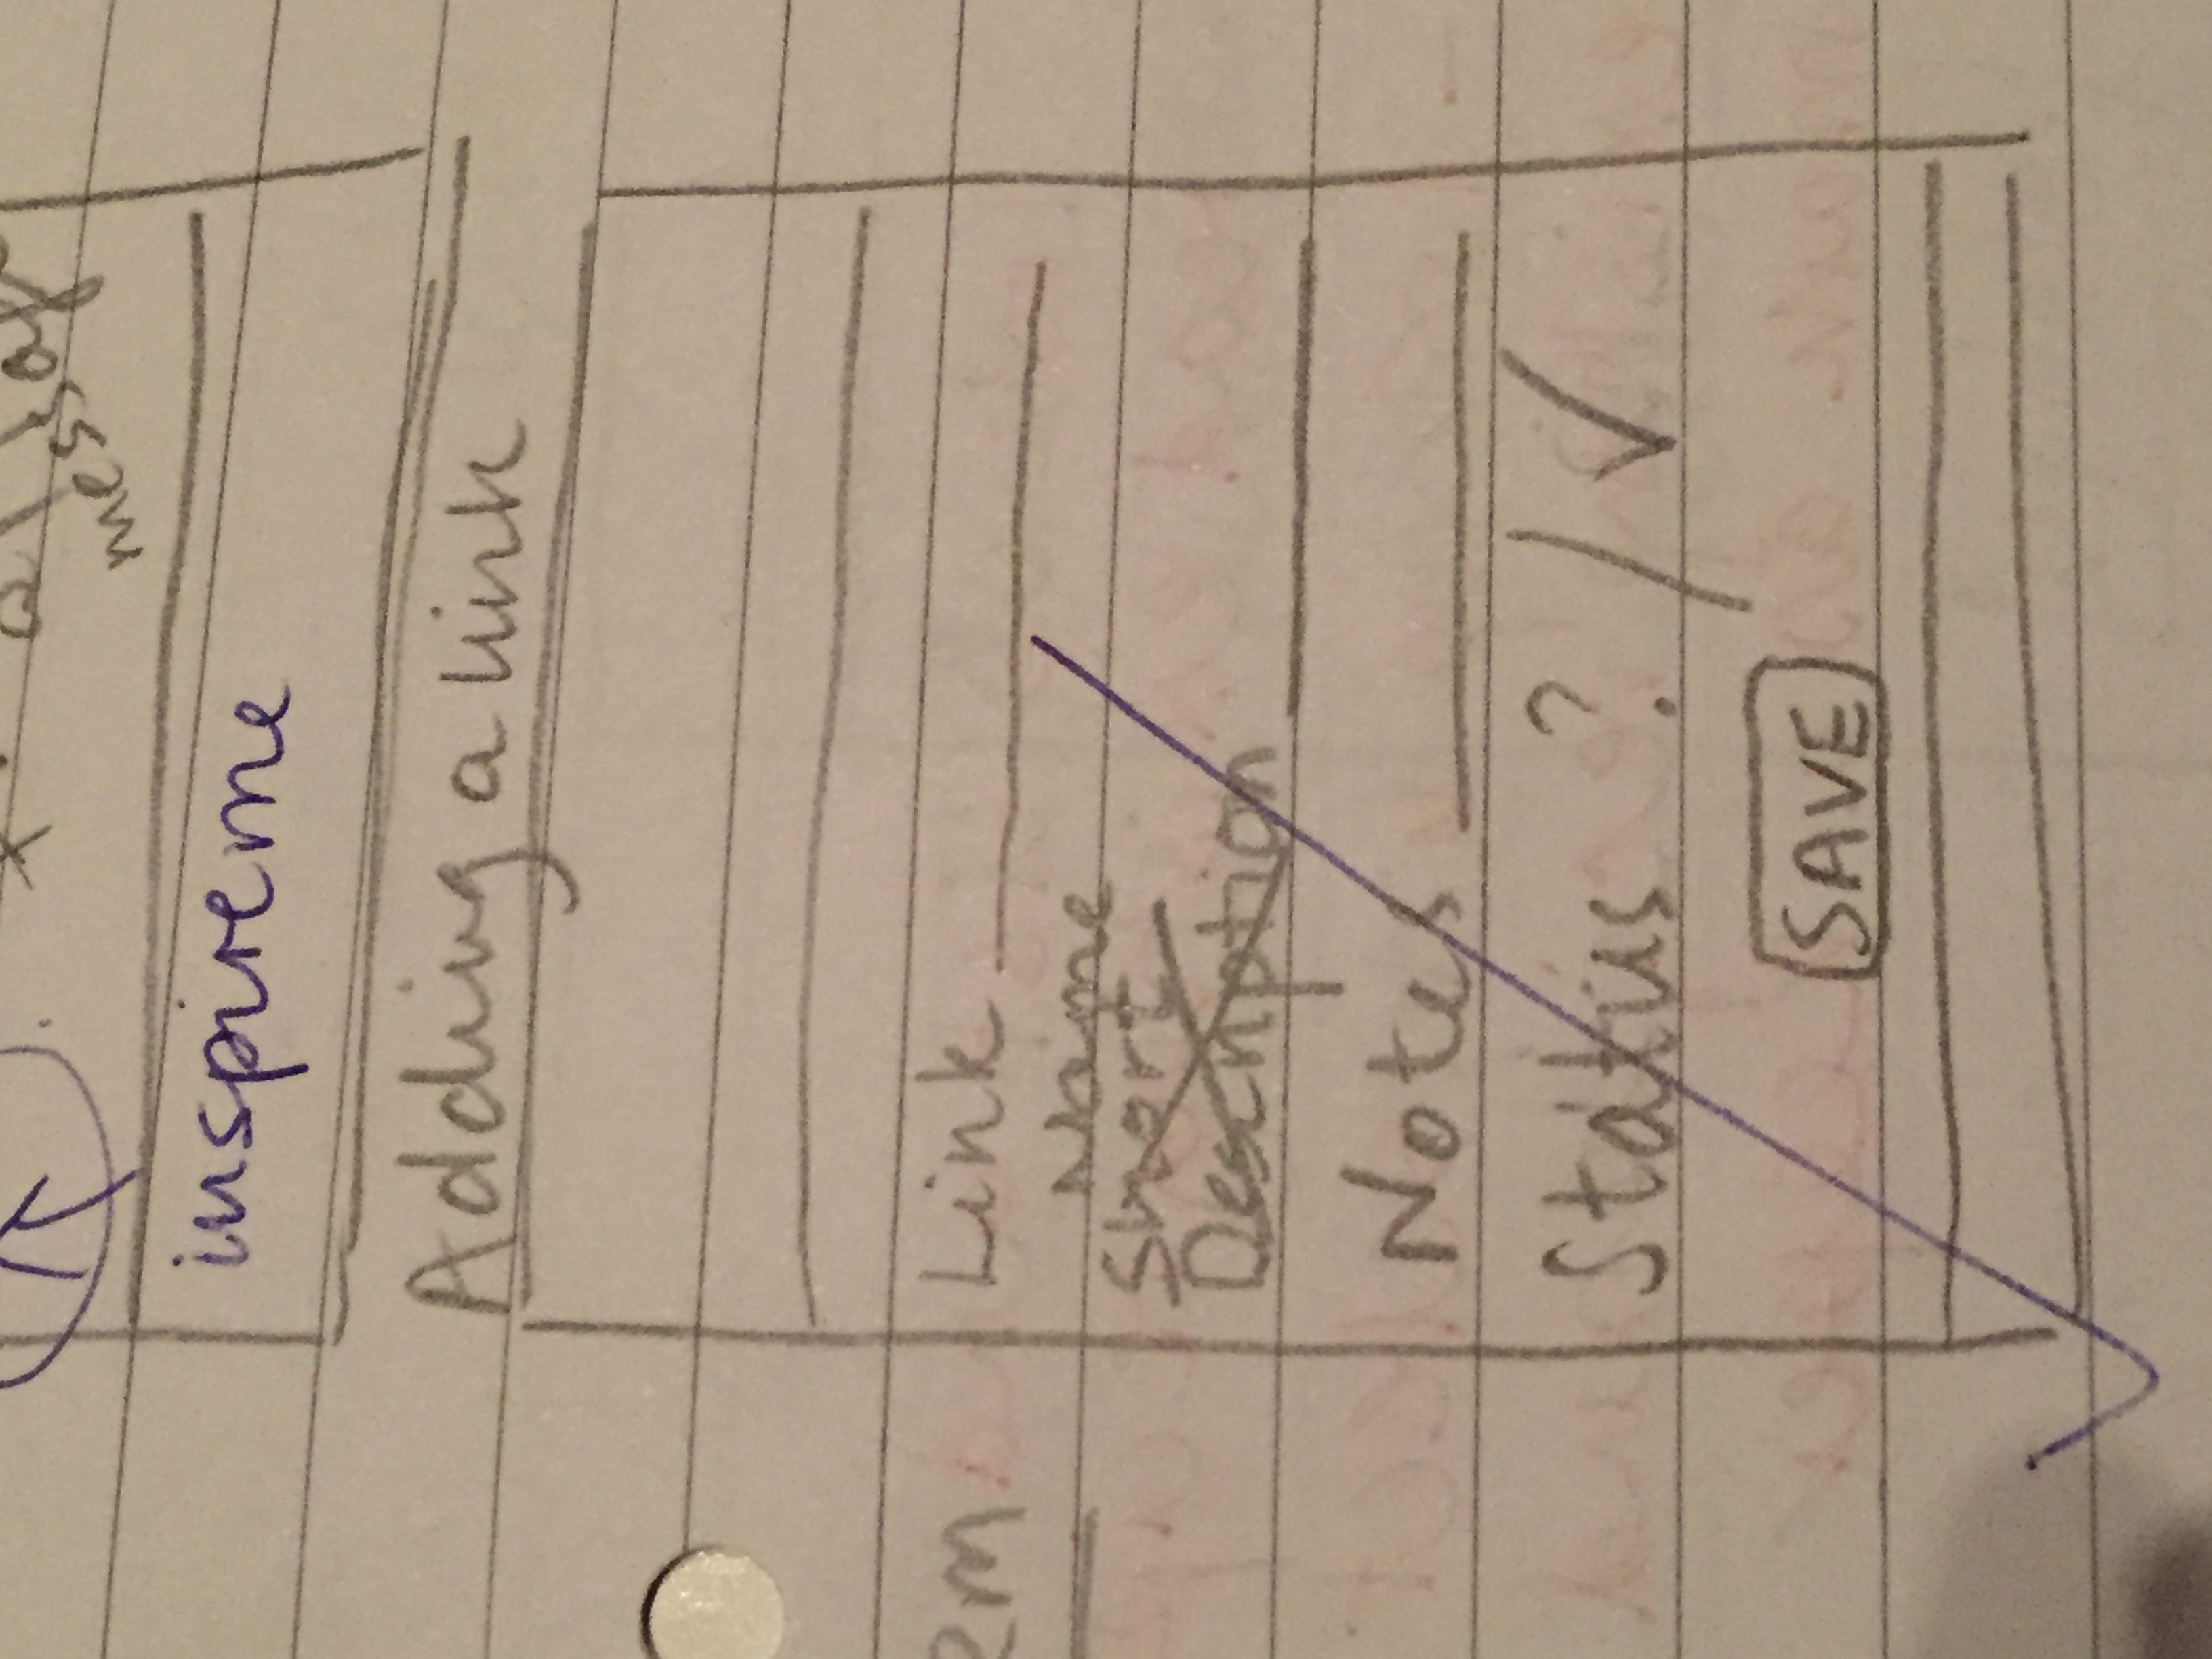 message
inspireme
Adding a link
Link
Name
Short
Description
Notes
Status ? / ✓
SAVE